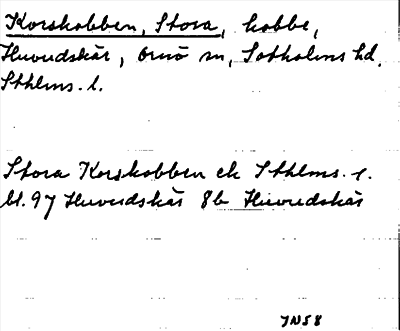 Korskobben, Stora, kobbe,
Huvudskär, Ornö sn, Sotholms hd.
Sthlms. l.
Stora Korskobben ek Sthlms. s.
bl. 97 Huvudskär 8b Huvudskär
JN58